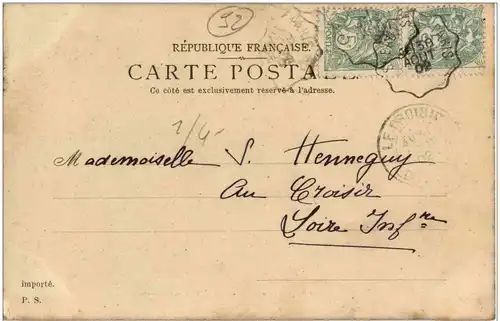 52
RÉPUBLIQUE FRANÇAISE.
CARTE POSTALE
Ce côté est exclusivement réservé à l'adresse.
1/4
Mademoiselle S. Henneguy
Au Croisic
Loire Infre
importé.
P. S.